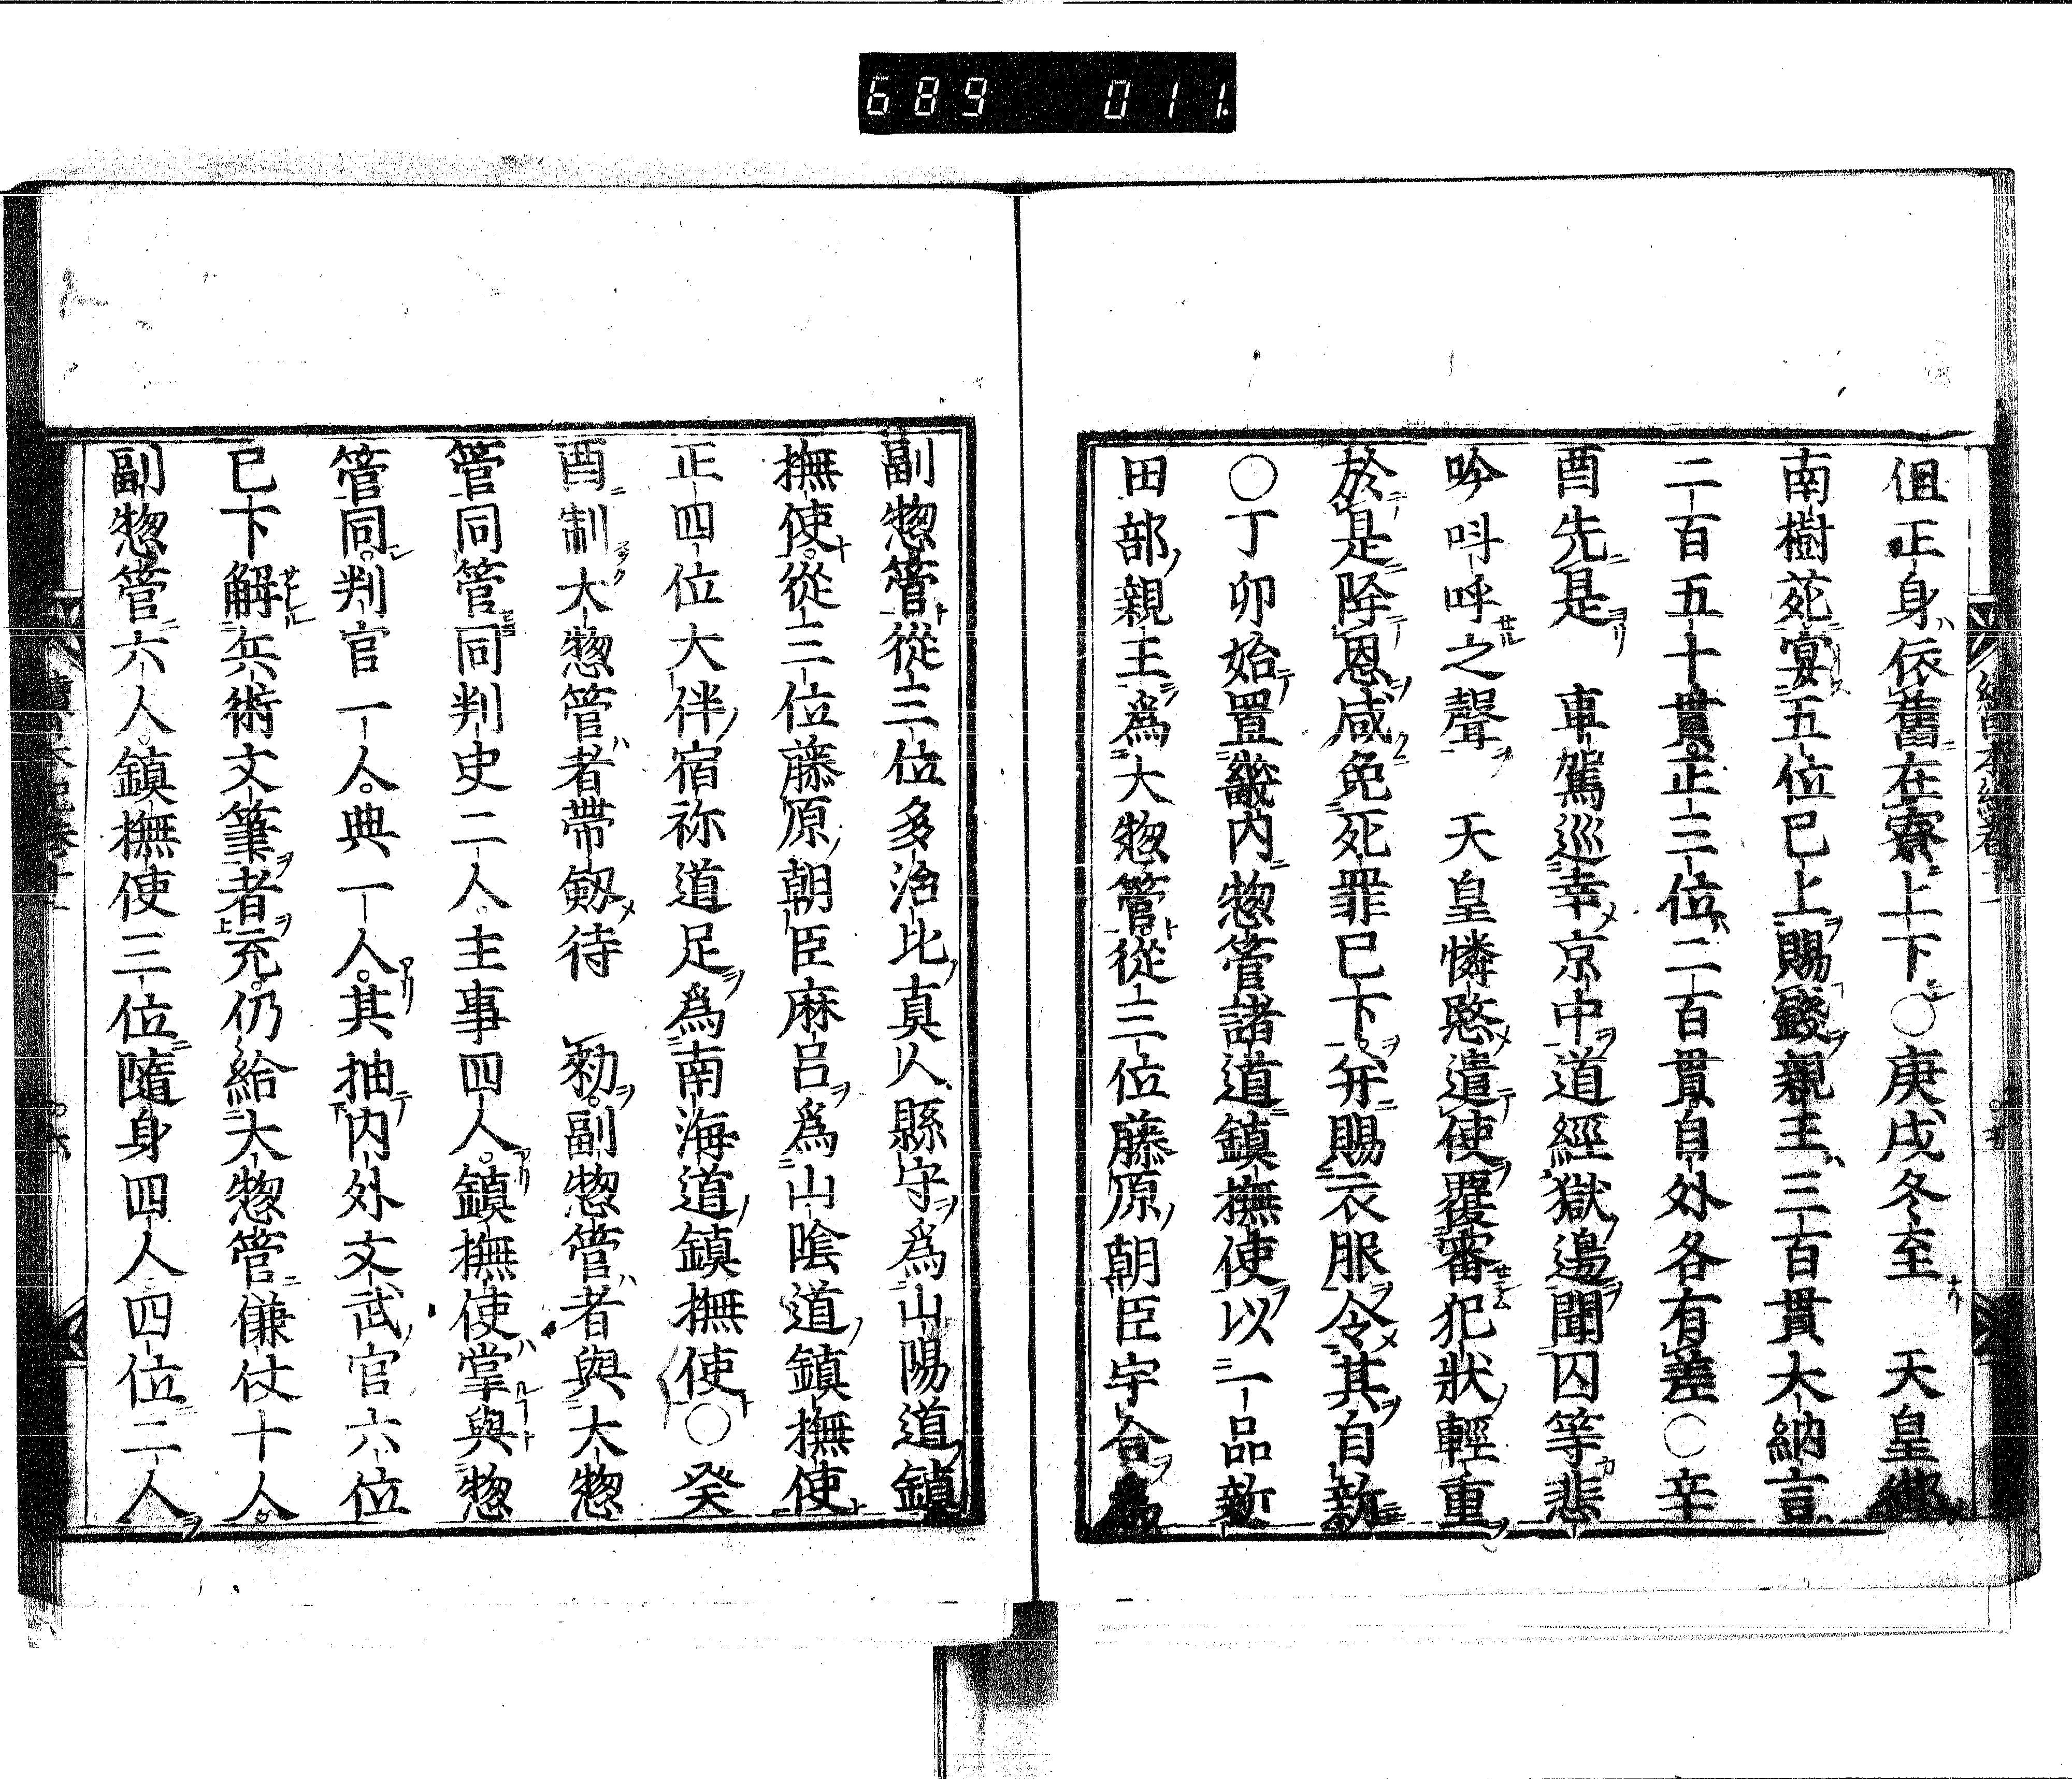 689 011.
但正身依舊在寮上下○庚戌冬至　天皇御
南樹苑宴五位已上賜錢親王三百貫大納言
二百五十貫正三位二百貫自外各有差○辛
酉先是　車駕巡幸京中道經獄邊聞囚等悲
吟呌呼之聲　天皇憐愍遣使覆審犯狀輕重
於是降恩咸免死罪已下并賜衣服令其自新
○丁卯始置畿内惣管諸道鎭撫使以一品新
田部親王爲大惣管從三位藤原朝臣宇合爲
副惣管從三位多治比真人縣守爲山陽道鎭
撫使從三位藤原朝臣麻呂爲山陰道鎭撫使
正四位大伴宿祢道足爲南海道鎭撫使○癸
酉制大惣管者帶劔待　勅副惣管者與大惣
管同管同判史二人主事四人鎭撫使掌與惣
管同判官一人典一人其抽内外文武官六位
已下解兵術文筆者充仍給大惣管傔仗十人
副惣管六人鎭撫使三位隨身四人四位二人